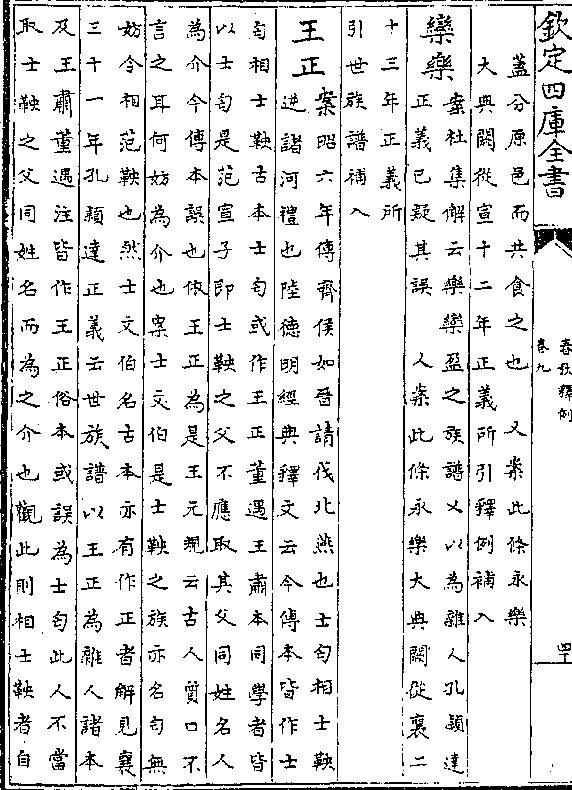 欽定四庫全書
春秋釋例
卷九
四十
蓋分原邑而共食之也 又案此條永樂
大典闕從宣十二年正義所引釋例補入
欒樂
案杜集解云欒樂盈之族譜又以為雜人孔穎達
正義已疑其誤 人案此條永樂大典闕從襄二
十三年正義所
引世族譜補入
王正
案昭六年傳齊侯如晉請伐北燕也士匄相士鞅
逆諸河禮也陸德明經典釋文云今傳本皆作士
匄相士鞅古本士匄或作王正董遇王肅本同學者皆
以士匄是范宣子即士鞅之父不應取其父同姓名人
為介今傳本誤也依王正為是王元規云古人質口不
言之耳何妨為介也案士文伯是士鞅之族亦名匄無
妨今相范鞅也然士文伯名古本亦有作正者解見襄
三十一年孔穎達正義云世族譜以王正為雜人諸本
及王肅董遇注皆作王正俗本或誤為士匄此人不當
取士鞅之父同姓名而為之介也觀此則相士鞅者自